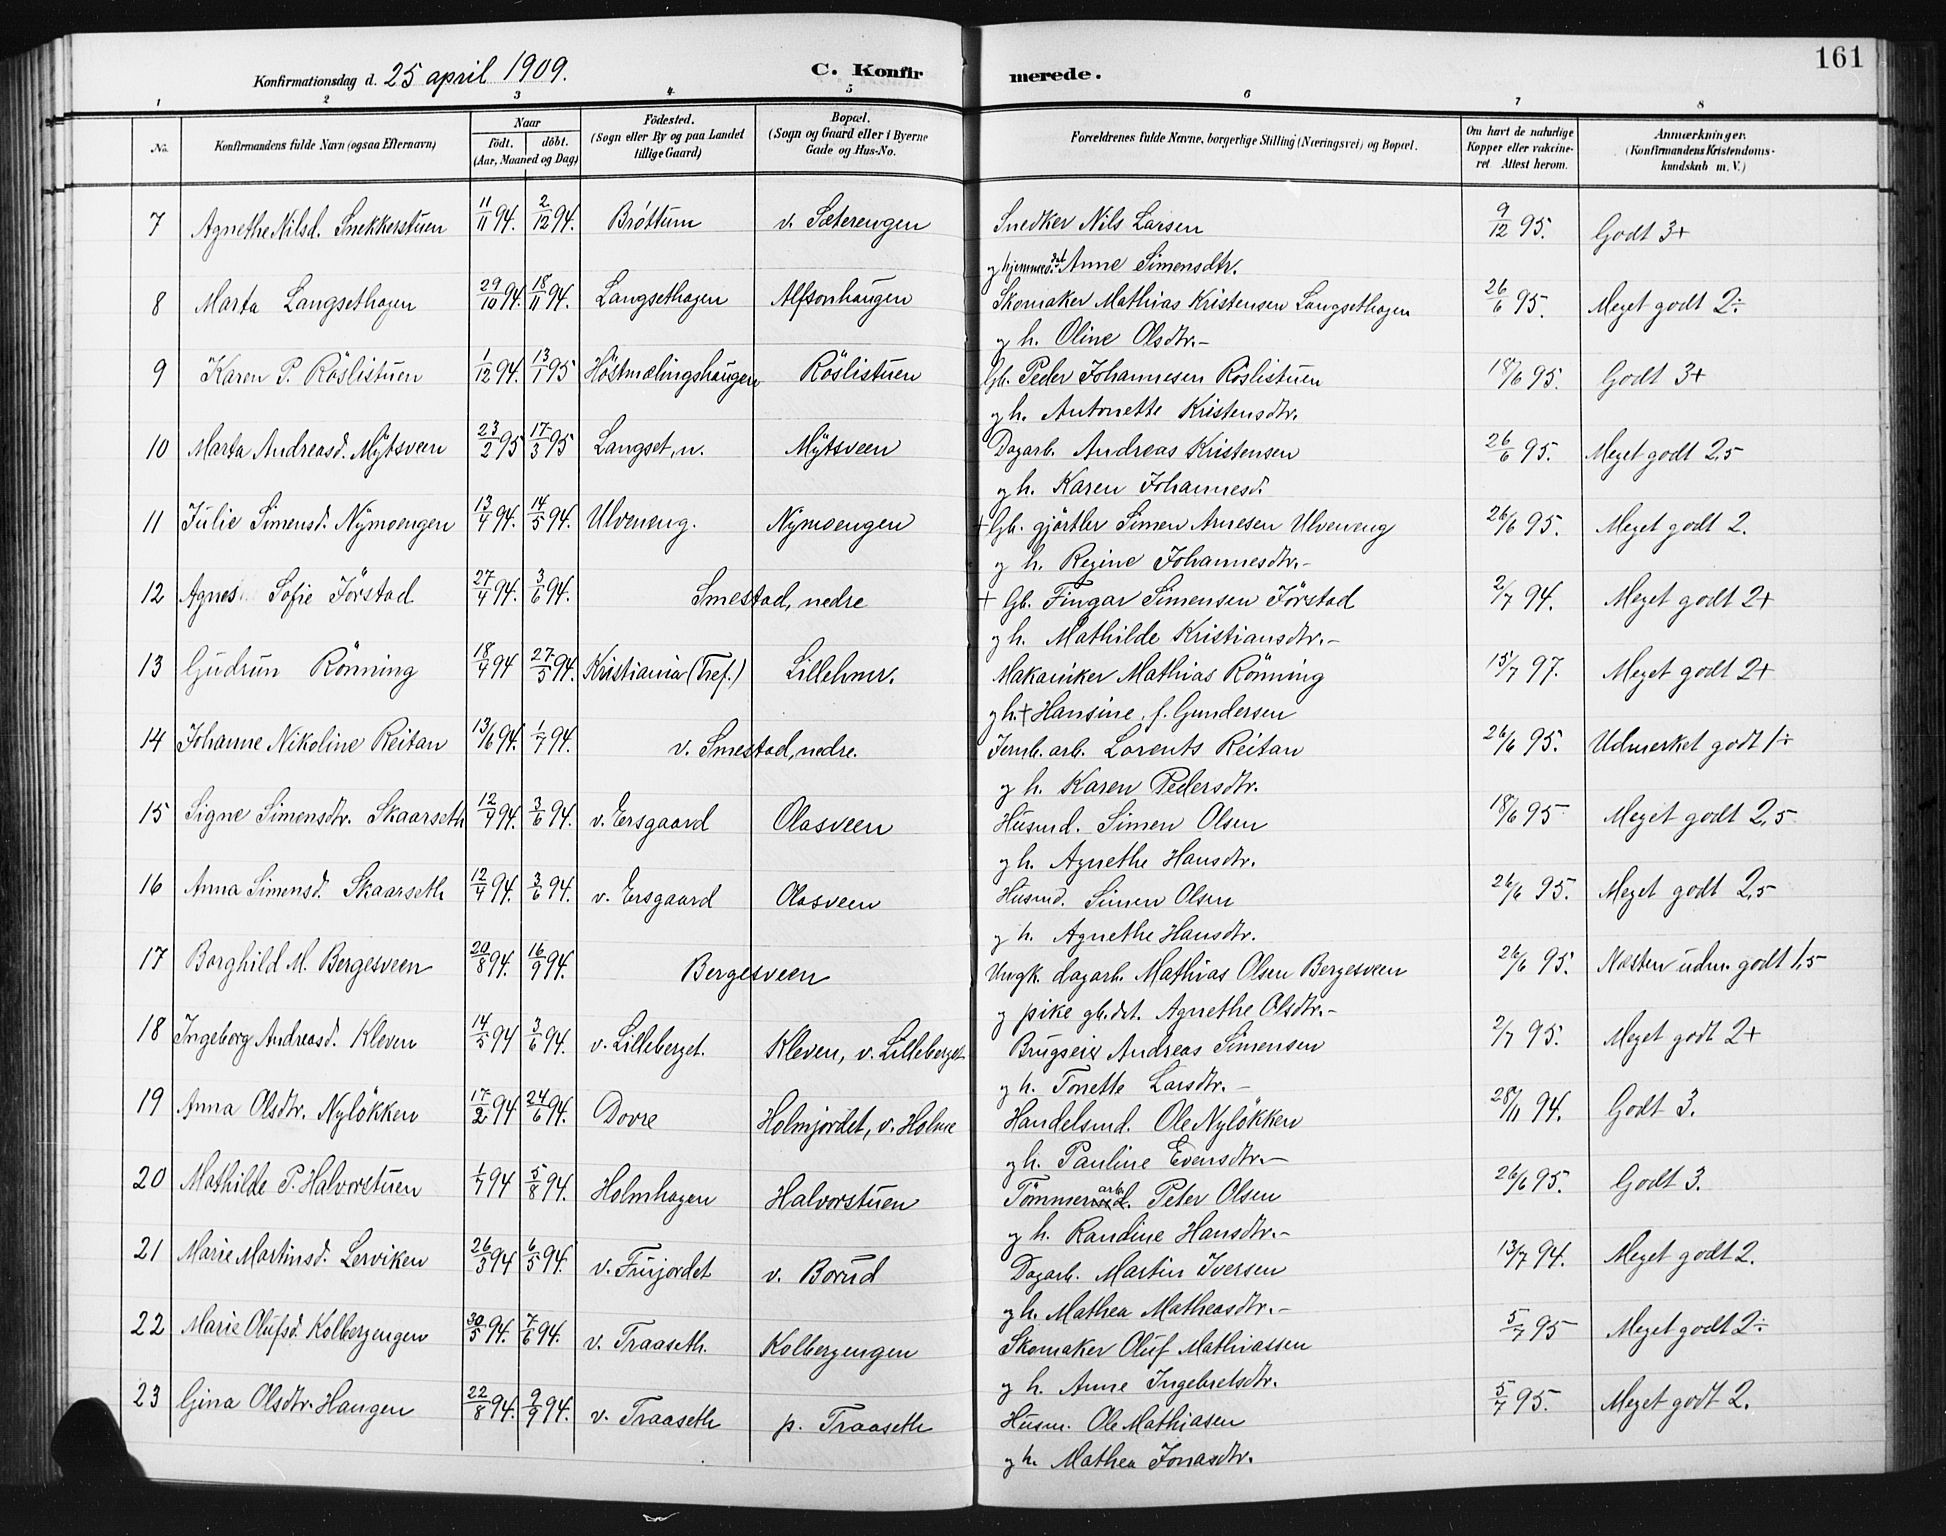 161
Konfirmationsdag d. 25 april 1909. C. Konfirmerede.
1 2 3 4 5 6 7 8
No. Konfirmandens fulde Navn (ogsaa Efternavn) Naar født. døbt. (Aar, Maaned og Dag) Fødested. (Sogn eller By og paa Landet tillige Gaard) Bopæl. (Sogn og Gaard eller i Byerne Gade og Hus-No. Forældrenes fulde Navne, borgerlige Stilling (Næringsvei) og Bopæl. Om havt de naturlige Kopper eller vakcineret Attest herom. Anmærkninger. (Konfirmandens Kristendomskundskab m. V.)
7 Agnethe Nilsd. Snekkerstuen 11/11 94. 2/12 94. Bröttum v. Sæterengen Snedker Nils Larsen 9/12 95. Godt 3+
og hjemmev. det Anne Simensdtr.
8 Marta Langsethagen 29/10 94. 18/11 94. Langsethagen Alfsonhaugen Skomaker Mathias Kristensen Langsethagen 26/6 95. Meget godt 2÷
og h. Oline Olsdtr.-
9 Karen P. Röslistuen 1/12 94. 13/1 95 Höstmælingshaugen Röslistuen Gb. Peder Johannesen Röslistuen 18/6 95. Godt 3+
og h. Antonette Kristensdtr.
10 Marta Andreasd. Mytsveen 23/2 95 17/3 95 Langset, n. Mytsveen Dagarb. Andreas Kristensen 26/6 95. Meget godt 2,5
og h. Karen Johannesd.
11 Julie Simensd. Nymoengen 13/4 94. 14/5 94. Ulveneng. Nymoengen + Gb. gjörtler Simen Arnesen Ulveneng 26/6 95. Meget godt 2.
og h. Regine Johannesdtr.-
12 Agnes Sofie Jörstad 27/4 94. 3/6 94. Smestad, nedre + Gb. Fingar Simensen Jörstad 2/7 94. Meget godt 2+
og h. Mathilde Kristiansdtr.-
13 Gudrun Rönning 18/4 94 27/5 94. Kristiania (Tref.) Lillehmr. Makaniker Mathias Rönning 15/7 97. Meget godt 2+
og h. + Hansine f. Gundersen
14 Johanne Nikoline Reitan 13/6 94. 1/7 94. v. Smestad, nedre. Jernb. arb. Lorents Reitan 26/6 95. Udmerket godt 1÷
og h. Karen Pedersdtr.
15 Signe Simensdtr. Skaarseth 12/4 94. 3/6 94. v. Ersgaard Olasveen Husmd. Simen Olsen 18/6 95 Meget godt 2,5
og h. Agnethe Hansdtr.
16 Anna Simensd. Skaarseth 12/4 94. 3/6 94. v. Ersgaard Olasveen Husmd. Simen Olsen 26/6 95. Meget godt 2,5
og h. Agnethe Hansdtr.
17 Borghild M. Bergesveen 20/8 94. 16/9 94. Bergesveen Ungk. dagarb. Mathias Olsen Bergesveen 26/6 95. Næsten udm. godt 1,5
og pike gb.dt. Agnethe Olsdtr.-
18 Ingeborg Andreasd. Kleven 14/5 94 3/6 94. v. Lilleberget. Kleven, v. Lilleberget. Brugseier Andreas Simensen 2/7 95. Meget godt 2+
og h. Tonette Larsdtr.-
19 Anna Olsdtr. Nylökken 17/2 94 24/6 94. Dovre Holmjordet, v. Holme Handelsmd. Ole Nylökken 28/11 94. Godt 3.
og h. Pauline Evensdtr.-
20 Mathilde P. Halvorstuen 1/7 94 5/8 94. Holmhagen Halvorstuen Tömmerarb. Peter Olsen 26/6 95. Godt 3.
og h. Randine Hansdtr.-
21 Marie Martinsd. Lerviken 26/3 94 6/5 94. v. Furjordet v. Borud Dagarb. Martin Iversen 13/7 94. Meget godt 2.
og h. Mathea Matheasdtr.-
22 Marie Olufsd. Kolbergengen 30/5 94. 7/6 94. v. Traaseth. Kolbergengen Skomaker Oluf Mathiassen 5/7 95 Meget godt 2÷
og h. Anne Ingebretsdtr.
23 Gina Olsdtr. Haugen 22/8 94. 9/9 94. v. Traaseth p. Traaseth Husm. Ole Mathiasen 5/7 95. Meget godt 2.
og h. Mathea Jonasdtr.